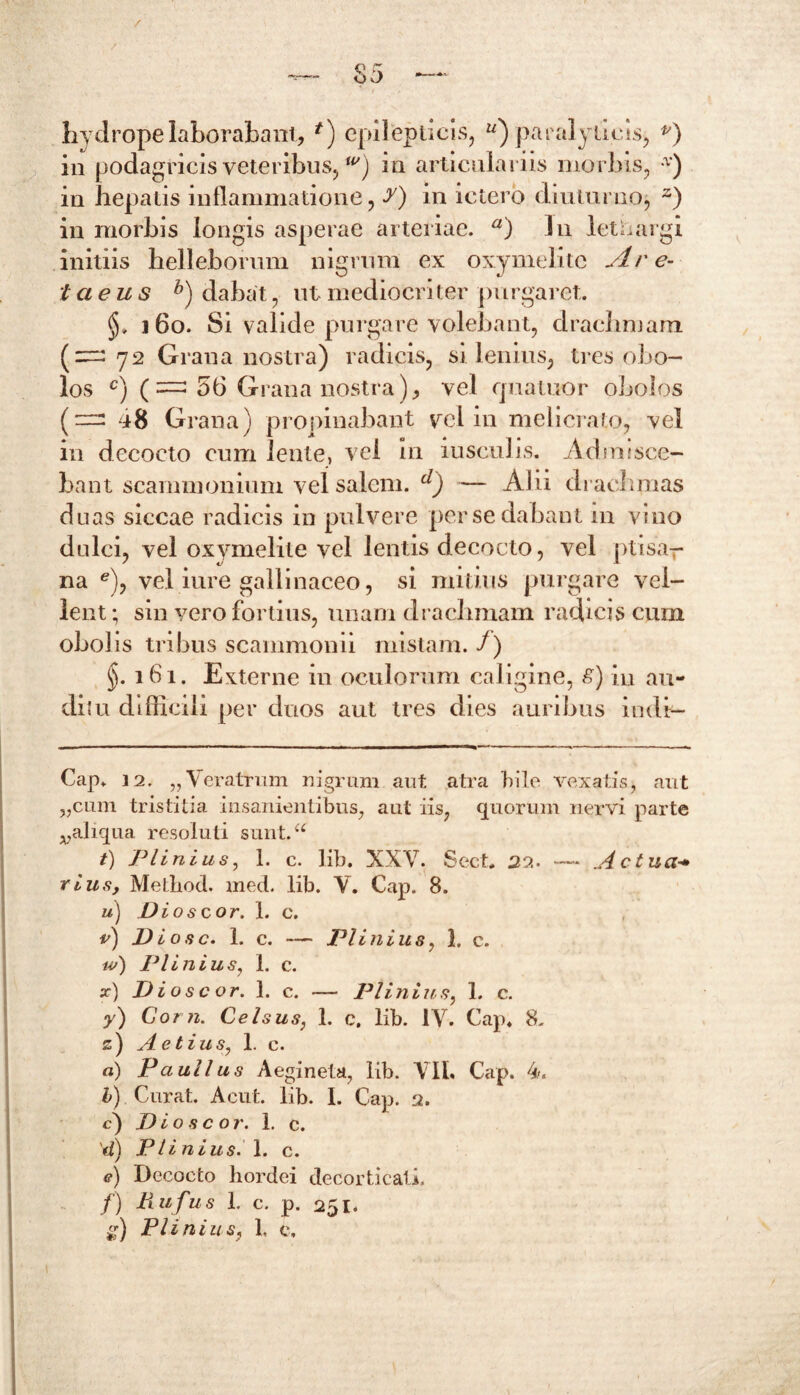 — 85 —
hydrope laborabant, t) epilepticis, u) paralyticis, v)
in podagricis veteribus, w) in articulariis morbis, x)
in hepatis inflammatione, y) in ictero diuturno, z)
in morbis longis asperae arteriae. a) In lethargi
initiis helleborum nigrum ex oxymelite Are-
taeus b) dabat, ut mediocriter purgaret.
§. 160. Si valide purgare volebant, drachmam
(= 72 Grana nostra) radicis, si lenius, tres obo-
los c) (= 36 Grana nostra), vel quatuor obolos
(= 48 Grana) propinabant vel in melicrato, vel
in decocto cum lente, vel in iusculis. Admisce-
bant scammonium vel salem. d) — Alii drachmas
duas siccae radicis in pulvere per se dabant in vino
dulci, vel oxymelite vel lentis decocto, vel ptisa-
na e), vel iure gallinaceo, si mitius purgare vel-
lent; sin vero fortius, unam drachmam radicis cum
obolis tribus scammonii mistam. f)
§. 161. Externe in oculorum caligine, g) in au-
ditu difficili per duos aut tres dies auribus indi-
Cap. 12. „Veratrum nigrum aut atra bile vexatis, aut
„cum tristitia insanientibus, aut iis, quorum nervi parte
„aliqua resoluti sunt.“
t) Plinius, l. c. lib. XXV. Sect. 22. — Actua-
rius, Method. med. lib. V. Cap. 8.
u) Dioscor. l. c.
v) Diosc. l. c. — Plinius, l. c.
w) Plinius, l. c.
x) Dioscor. l. c. — Plinius, l. c.
y) Corn. Celsus, l. c. lib. IV. Cap. 8.
z) Aetius, l. c.
a) Paullus Aegineta, lib. VII. Cap. 4.
b) Curat. Acut. lib. I. Cap. 2.
c) Dioscor. l. c.
d) Plinius. l. c.
e) Decocto hordei decorticati.
f) Rufus l. c. p. 251.
g) Plinius, l. c.